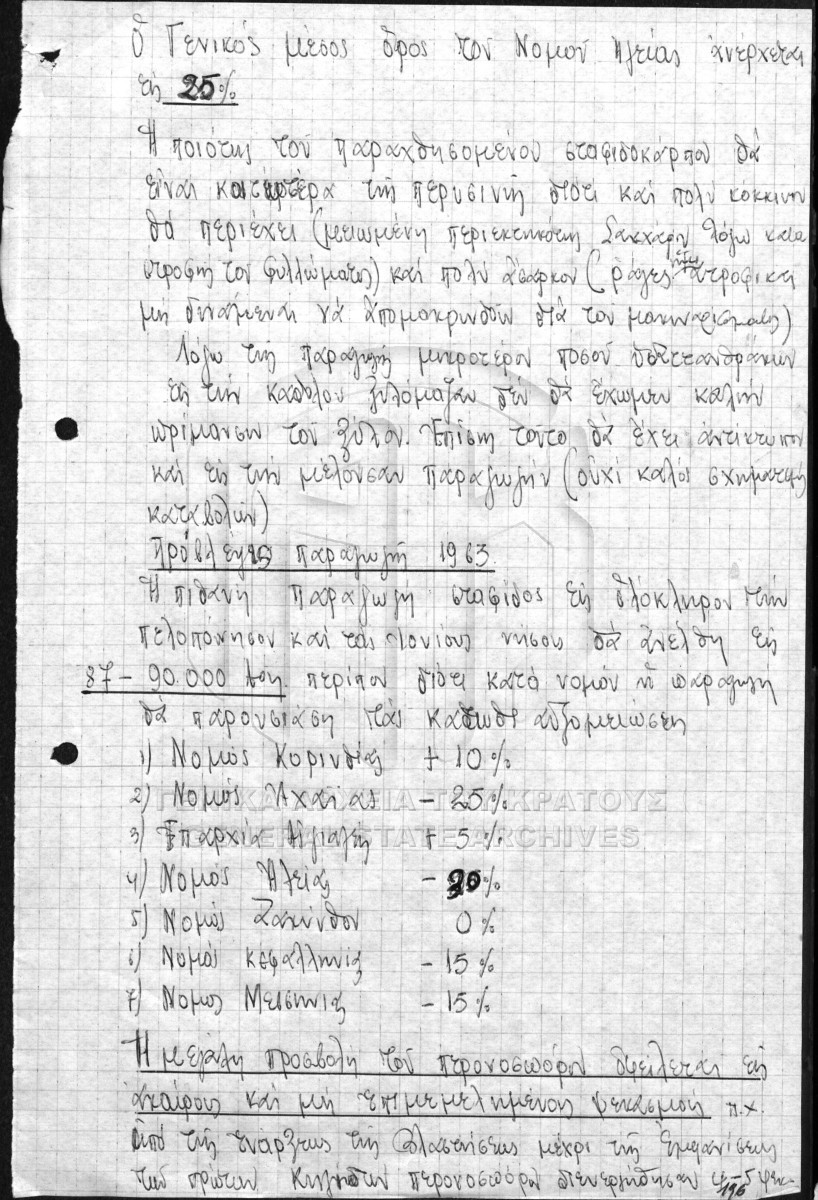 Ὁ Γενικός μέσος ὅρος τοῦ Νομοῦ Ἠλείας ἀνέρχεται
εἰς 25%
Ἡ ποιότης τοῦ παραχθησομένου σταφιδοκάρπου θά
εἶναι κατωτέρα τῆς περυσινῆς διότι καί πολύ κόκκινον
θά περιέχει (μειωμένη περιεκτικότης Σακχάρου λόγω κατα
στροφῆς τοῦ φυλλώματος) καί πολύ ἄσαρκον (ράγες ἀτροφικαι
μή δυνάμεναι νά ἀπομακρυνθοῦν διά τοῦ μακιναρίσματος)
Λόγω τῆς παραγωγῆς μικροτέρου ποσοῦ ὑδατανθράκων
εἰς τήν καθόλου ξυλόμαζαν δέν θά ἔχωμεν καλήν
ὡρίμανσιν τοῦ ξύλου. Ἐπίσης τοῦτο θά ἔχει ἀντίκτυπον
καί εἰς τήν μέλουσαν παραγωγήν (οὐχί καλός σχηματισμός
καταβολῶν)
Πρόβλεψις παραγωγῆς 1963
Ἡ πιθανή παραγωγή σταφίδος εἰς ὁλόκληρον τήν
Πελοπόνησον καί τάς Ἰονίους νήσους θά ἀνέλθη εἰς
87 - 90.000 τόν. περίπου διότι κατά νομόν ἡ παραγωγή
θά παρουσιάση τάς κάτωθι αὐξομειώσεις
1) Νομός Κορινθίας + 10%
2) Νομός Ἀχαΐας - 25%
3) Ἐπαρχία Αἰγιαλείας + 5%
4) Νομός Ἠλείας - 20%
5) Νομός Ζακύνθου 0%
6) Νομός Κεφαλληνίας - 15%
7) Νομος Μεσσηνίας - 15%
Ἡ μεγάλη προσβολή τοῦ περονοσπόρου ὀφείλεται εἰς
ἀκαίρους καί μή ἐπιμεμελημένους ψεκασμούς π.χ.
ἀπό τῆς ἐνάρξεως τῆς βλαστήσεως μέχρι τῆς ἐμφανίσεως
τῶν πρώτων κηλίδων περονοσπόρου διενεργήθησαν 4-5 ψεκ-
ΓΕΝΙΚΑ ΑΡΧΕΙΑ ΤΟΥ ΚΡΑΤΟΥΣ
GENERAL STATE ARCHIVES